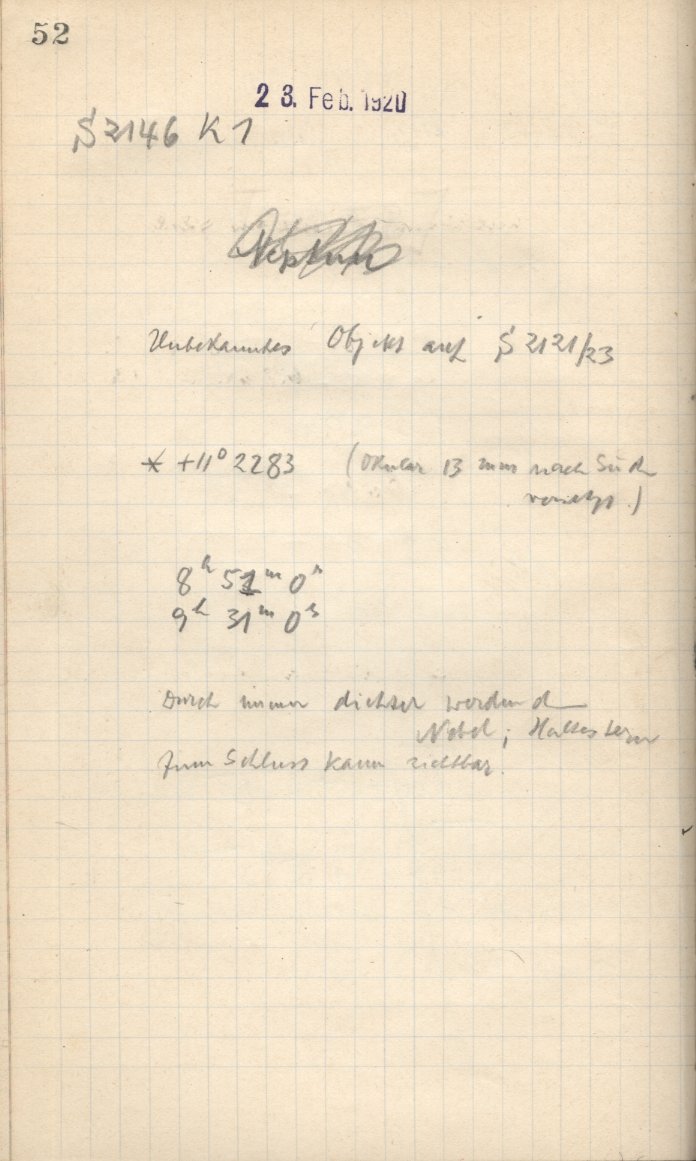 52
23. Feb. 1920
S 2146 K 1
Neptun
Unbekanntes Objekt auf S 2121/23
* +11° 2283 (Okular 13 mm nach Süden
versetzt.)
8h 51m 0s
9h 31m 0s
Durch immer dichter werdend
Nebel; Haltestern
zum Schluss kaum sichtbar.